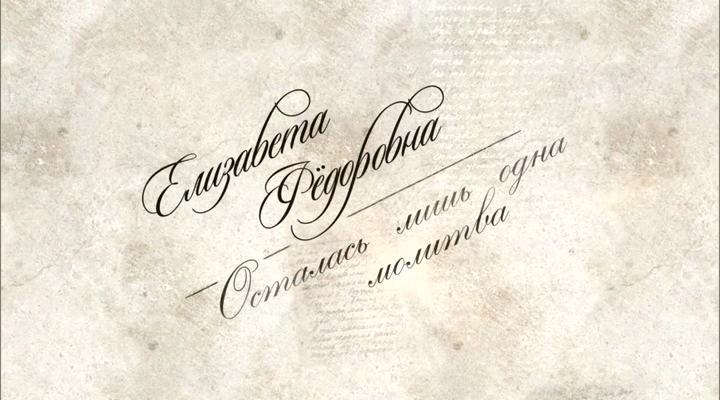 Елизавета
Фёдоровна
Осталась лишь одна
молитва